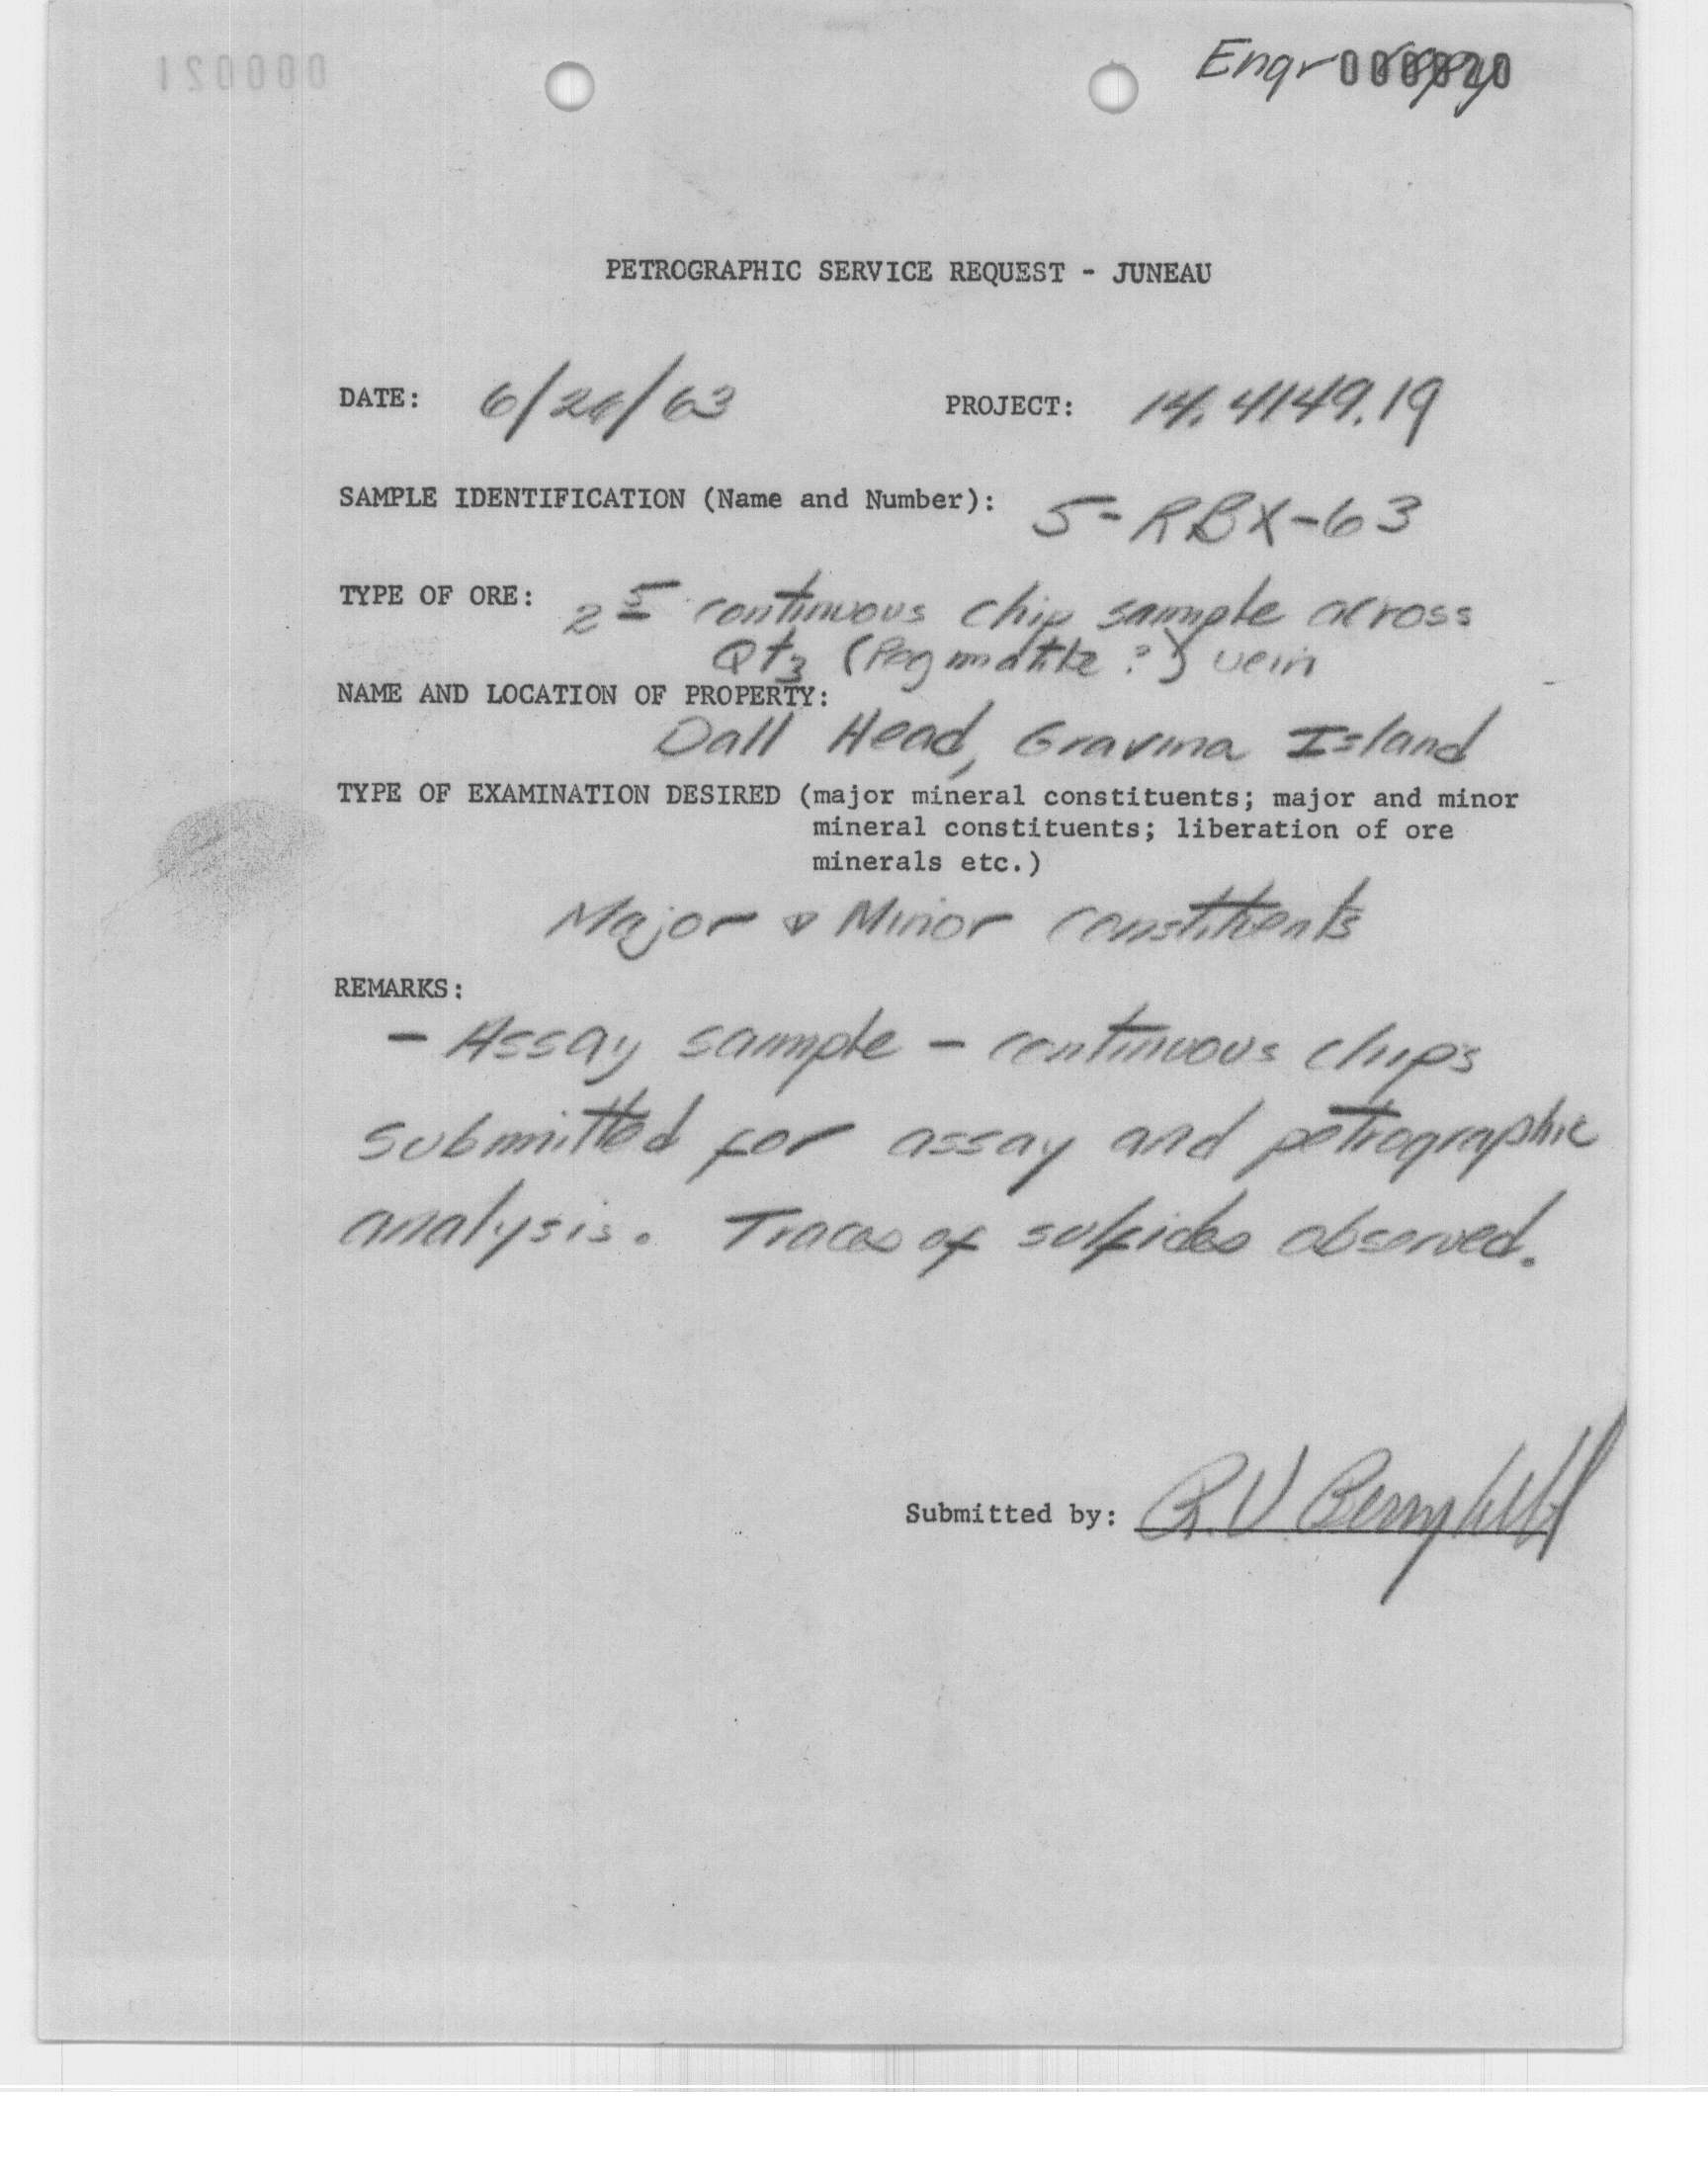 Engr Copy 000020
PETROGRAPHIC SERVICE REQUEST - JUNEAU
DATE: 6/26/63 PROJECT: 14.4149.19
SAMPLE IDENTIFICATION (Name and Number): 5-RBX-63
TYPE OF ORE: 2 5 continuous chip sample across
Qtz (Pegmatite?) vein
NAME AND LOCATION OF PROPERTY:
Dall Head, Gravina Island
TYPE OF EXAMINATION DESIRED (major mineral constituents; major and minor
mineral constituents; liberation of ore
minerals etc.)
Major & Minor constituents
REMARKS:
- Assay sample - continuous chips
submitted for assay and petrographic
analysis. Traces of sulfides observed.
Submitted by: R.V. Berryhill